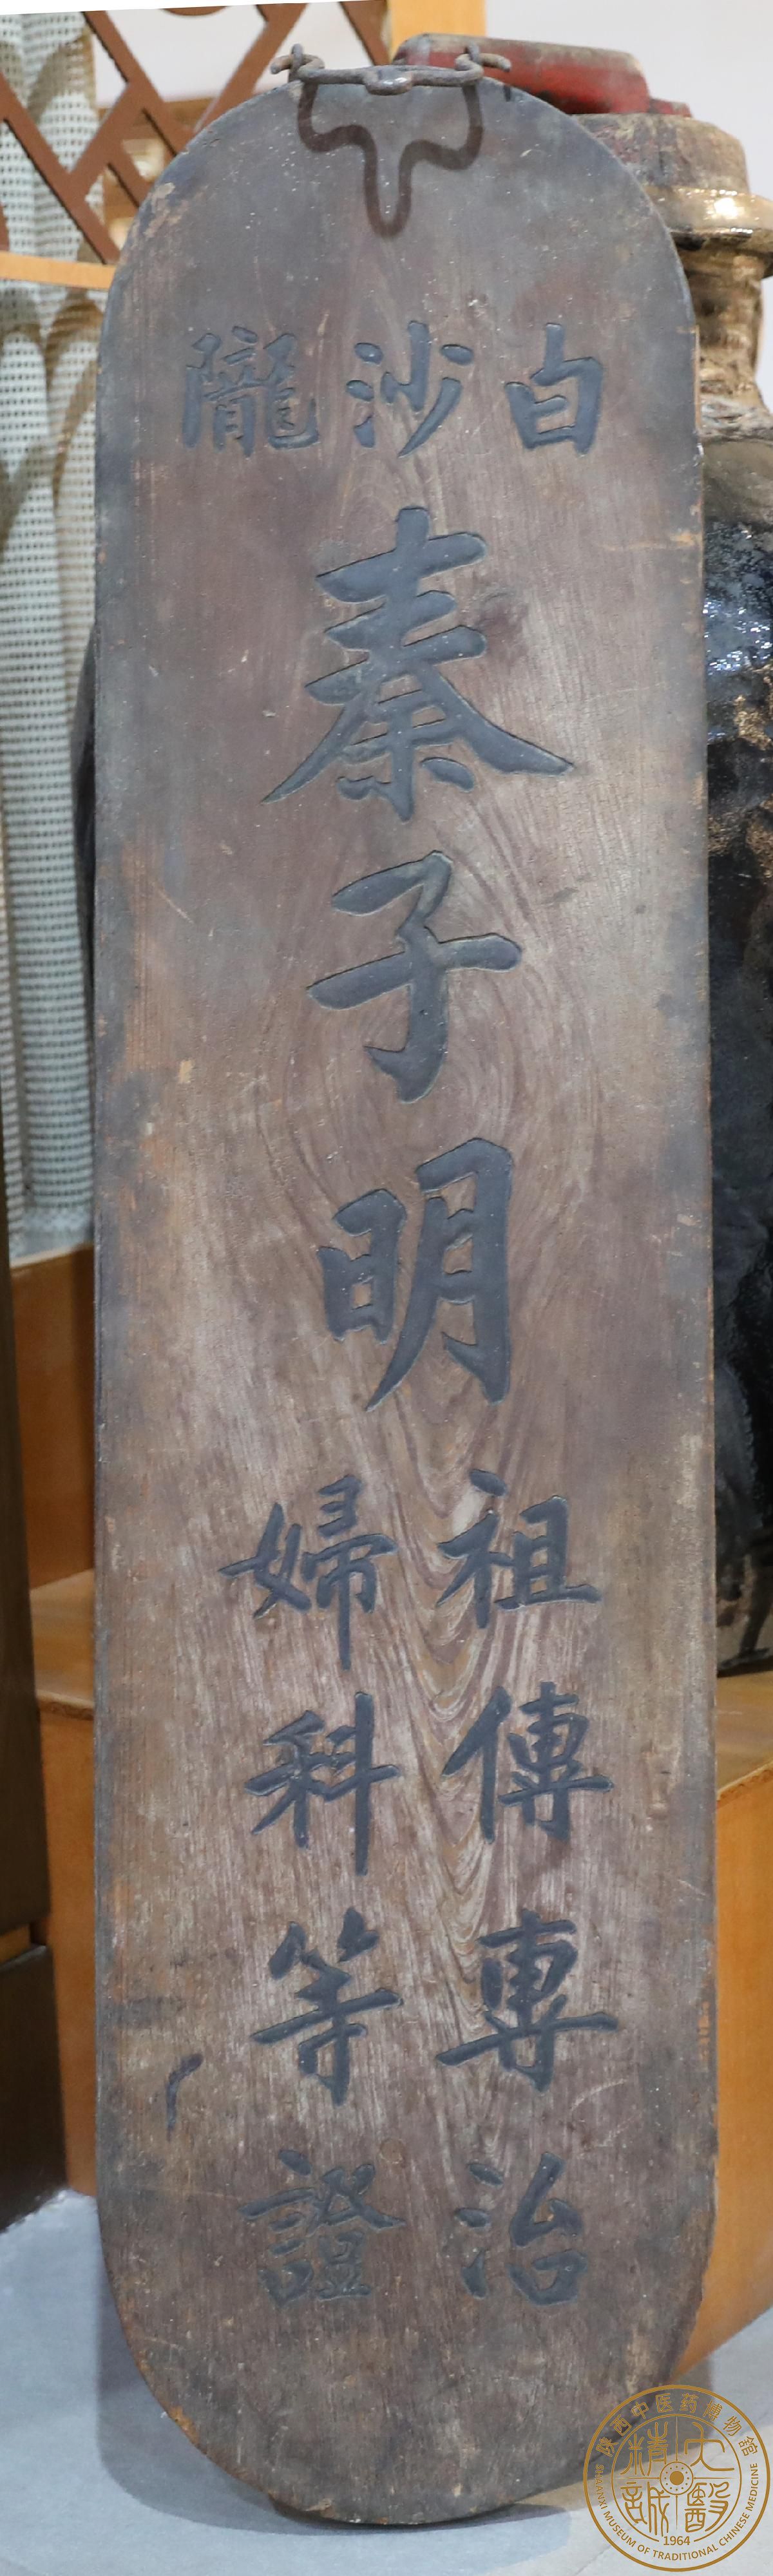 白沙隴
秦子明
祖傳專治
婦科等證
陝西中医药博物館
大醫精誠
SHAANXI MUSEUM OF TRADITIONAL CHINESE MEDICINE
1964